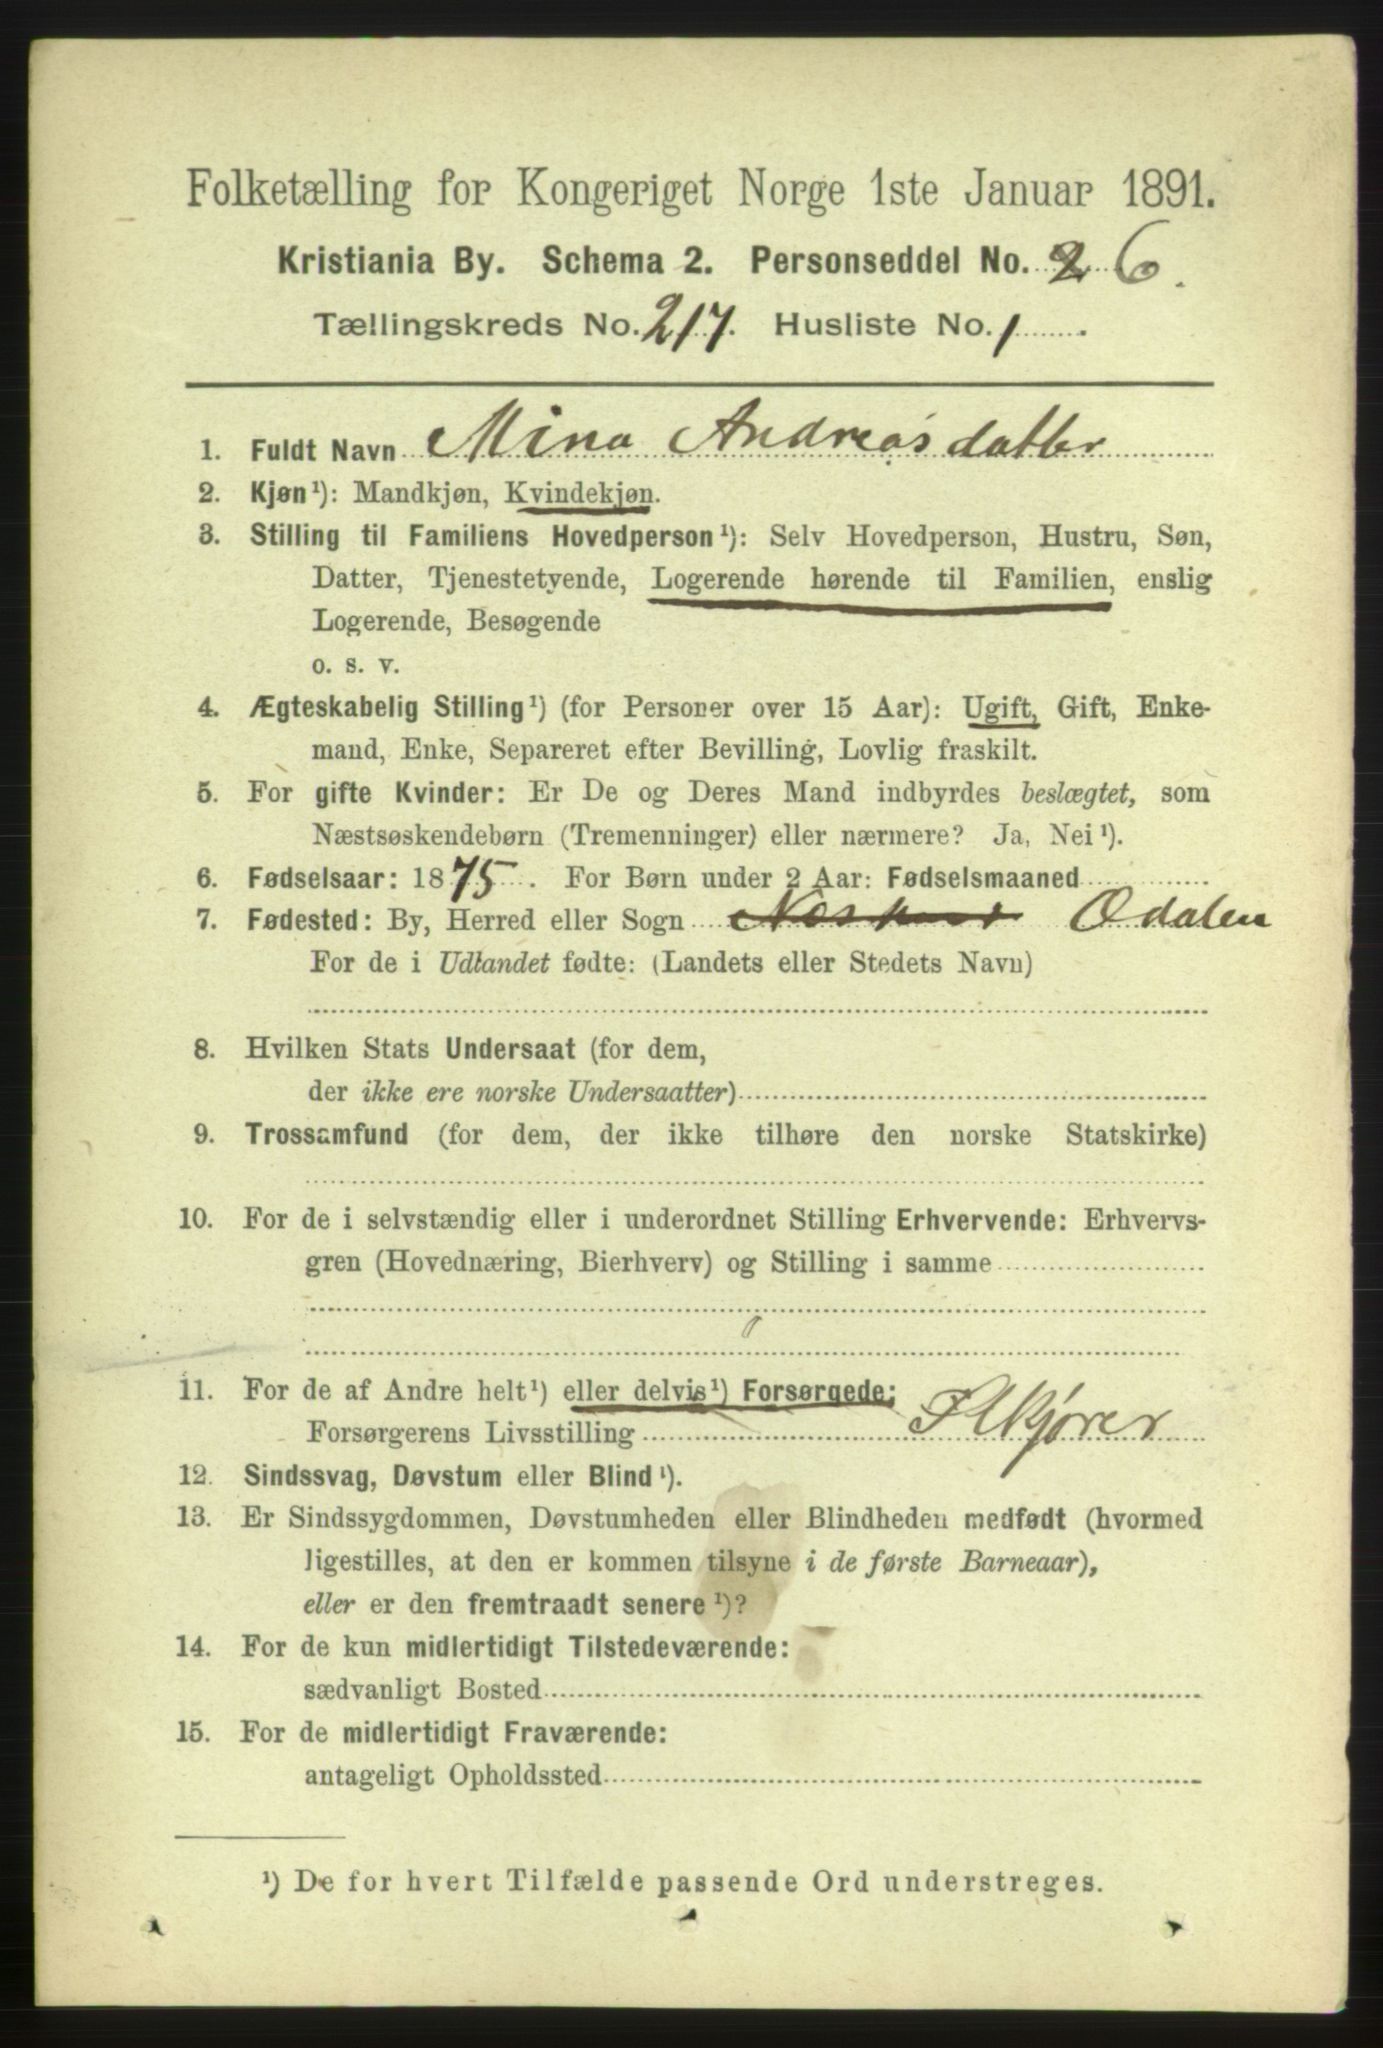 Folketælling for Kongeriget Norge 1ste Januar 1891.
Kristiania By. Schema 2. Personseddel No. 2 6.
Tællingskreds No. 217. Husliste No. 1
1. Fuldt Navn Mina Andreasdatter
2. Kjøn¹): Mandkjøn, Kvindekjøn.
3. Stilling til Familiens Hovedperson¹): Selv Hovedperson, Hustru, Søn,
Datter, Tjenestetyende, Logerende hørende til Familien, enslig
Logerende, Besøgende
o. s. v.
4. Ægteskabelig Stilling¹) (for Personer over 15 Aar): Ugift, Gift, Enke-
mand, Enke, Separeret efter Bevilling, Lovlig fraskilt.
5. For gifte Kvinder: Er De og Deres Mand indbyrdes beslægtet, som
Næstsøskendebørn (Tremenninger) eller nærmere? Ja, Nei¹).
6. Fødselsaar: 1875. For Børn under 2 Aar: Fødselsmaaned
7. Fødested: By, Herred eller Sogn Odalen
For de i Udlandet fødte: (Landets eller Stedets Navn)
8. Hvilken Stats Undersaat (for dem,
der ikke ere norske Undersaatter)
9. Trossamfund (for dem, der ikke tilhøre den norske Statskirke)
10. For de i selvstændig eller i underordnet Stilling Erhvervende: Erhvervs-
gren (Hovednæring, Bierhverv) og Stilling i samme
11. For de af Andre helt¹) eller delvis¹) Forsørgede:
Forsørgerens Livsstilling
12. Sindssvag, Døvstum eller Blind¹).
13. Er Sindssygdommen, Døvstumheden eller Blindheden medfødt (hvormed
ligestilles, at den er kommen tilsyne i de første Barneaar),
eller er den fremtraadt senere¹)?
14. For de kun midlertidigt Tilstedeværende:
sædvanligt Bosted
15. For de midlertidigt Fraværende:
antageligt Opholdssted
¹) De for hvert Tilfælde passende Ord understreges.